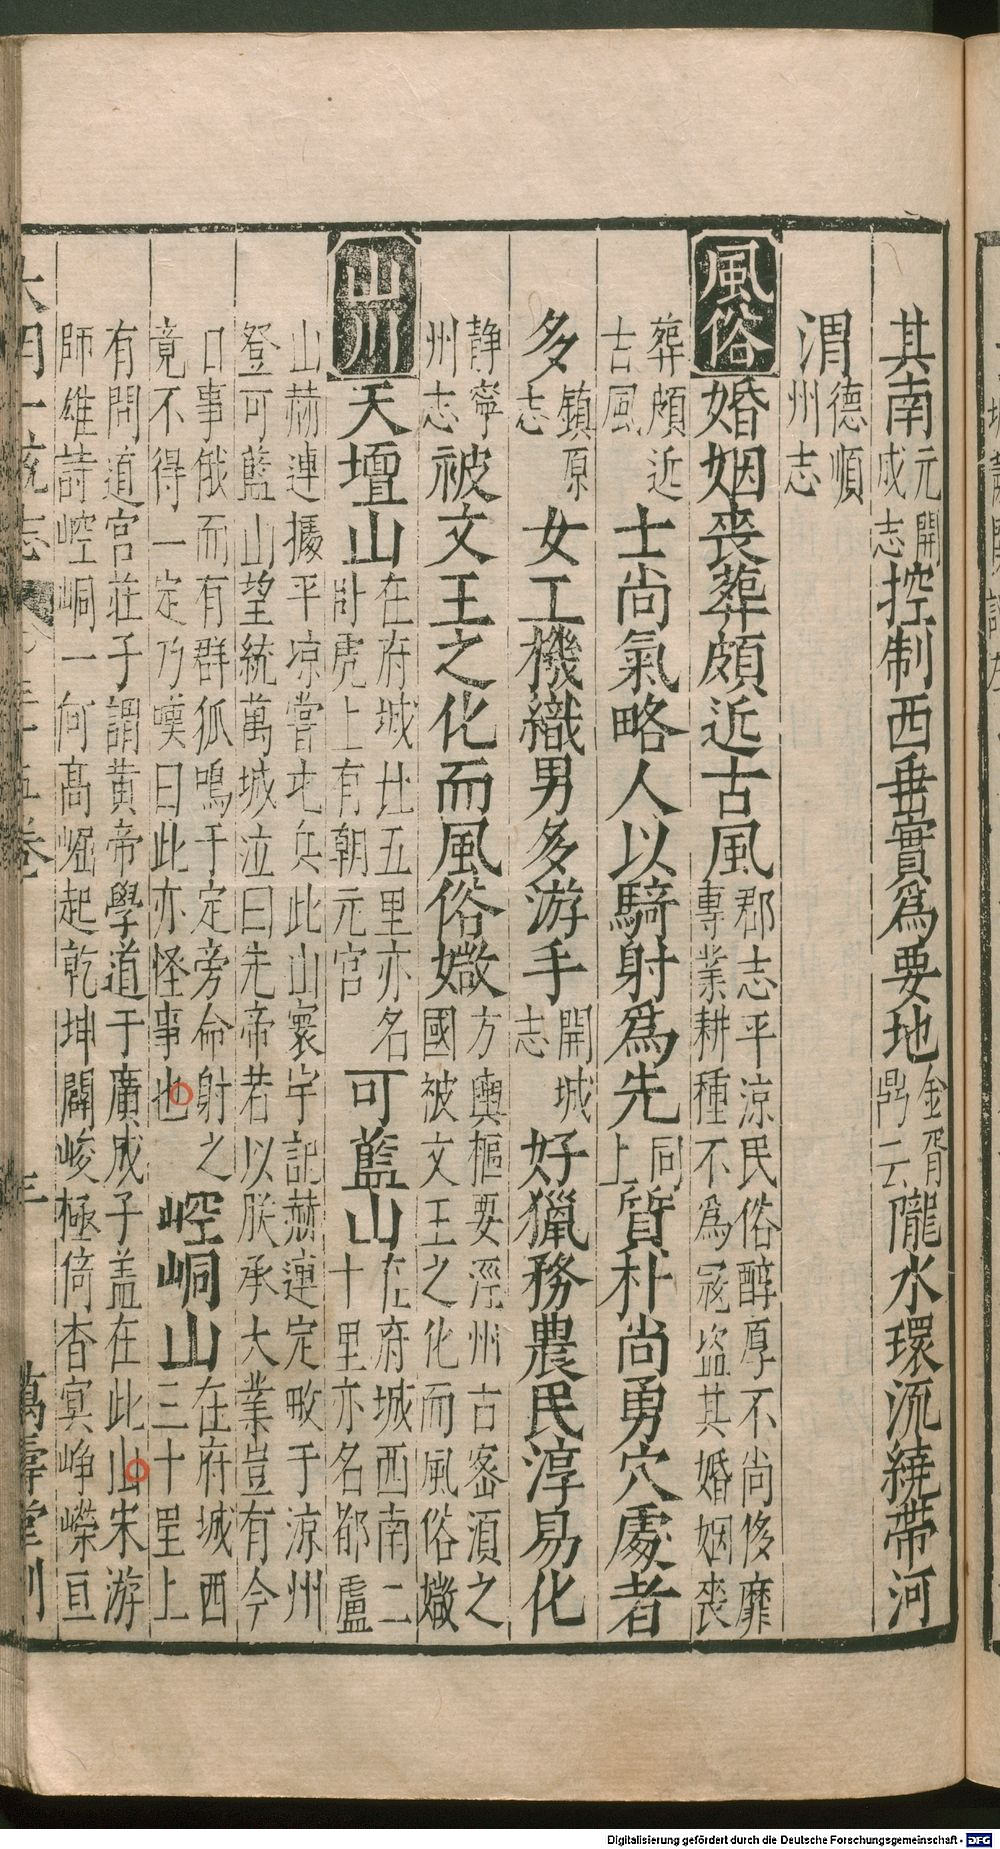 其南元開成志控制西垂實爲要地金胥鼎云隴水環流繞帶河
渭德順州志
風俗婚姻喪葬頗近古風郡志平涼民俗醇厚不尚侈靡專業耕種不爲寇盜其婚姻喪
葬頗近古風士尚氣略人以騎射爲先同上質朴尚勇穴處者
多鎮原志女工機織男多游手開城志好獵務農民淳易化
静寧州志被文王之化而風俗媺方輿樞要涇州古密湏之國被文王之化而風俗媺
山川天壇山在府城北五里亦名卧虎上有朝元宮可藍山在府城西南二十里亦名都盧
山赫連據平凉嘗屯兵此山寰宇記赫連定畋于涼州
登可藍山望統萬城泣曰先帝若以朕承大業豈有今
日事俄而有群狐鳴于定旁命射之
竟不得一定乃嘆曰此亦怪事也崆峒山在府城西三十里上
有問道宮莊子謂黃帝學道于廣成子盖在此山宋游
師雄詩崆峒一何髙崛起乾坤闢峻極倚杳㝠峥嶸亘
大明一統志 三十五卷 三 萬壽堂刊
Digitalisierung gefördert durch die Deutsche Forschungsgemeinschaft - DFG